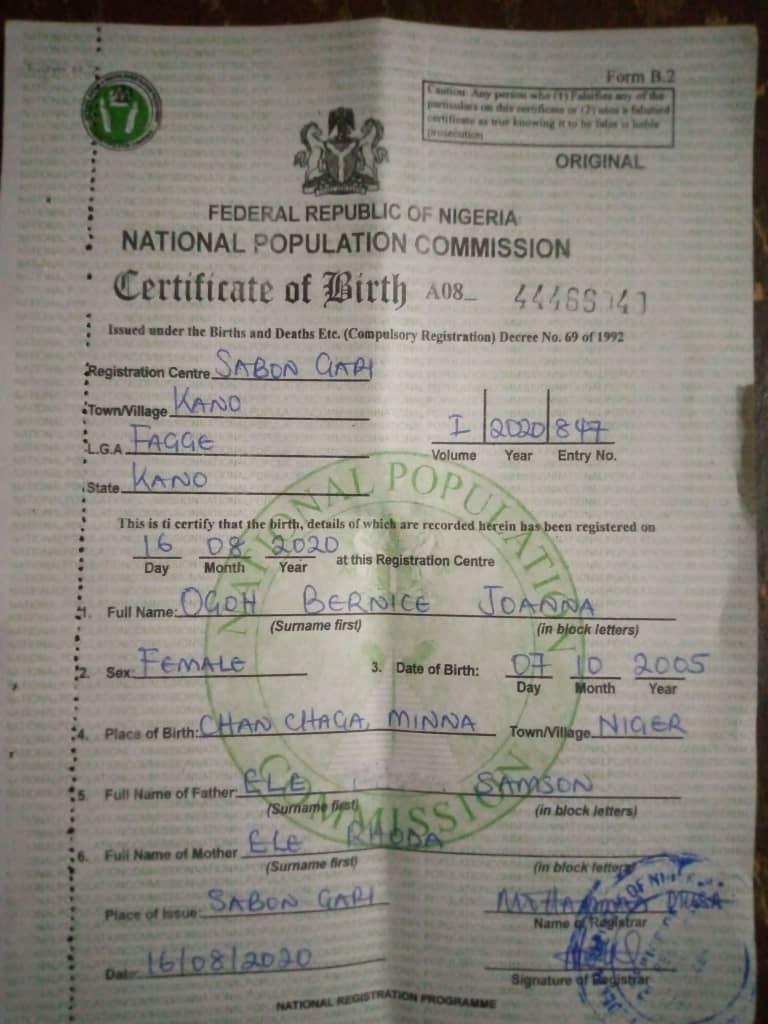 Form B.2
Caution: Any person who (1) Falsifies any of the
particulars on this certificate or (2) uses a falsified
certificate as true knowing it to be false is liable
prosecution
ORIGINAL
FEDERAL REPUBLIC OF NIGERIA
NATIONAL POPULATION COMMISSION
Certificate of Birth A08_
Issued under the Births and Deaths Etc. (Compulsory Registration) Decree No. 69 of 1992
Registration Centre SABON GARI
Town/Village KANO
L.G.A FAGGE
I 2020 847
Volume Year Entry No.
State KANO
NATIONAL POPULATION COMMISSION
This is ti certify that the birth, details of which are recorded herein has been registered on
16 08 2020 at this Registration Centre
Day Month Year
1. Full Name: OGOH BERNICE JOANNA
(Surname first) (in block letters)
2. Sex: FEMALE 3. Date of Birth: 07 10 2005
Day Month Year
4. Place of Birth: CHANCHAGA, MINNA Town/Village NIGER
5. Full Name of Father: ELE SAMSON
(Surname first) (in block letters)
6. Full Name of Mother ELE RHODA
(Surname first) (in block letters)
Place of Issue: SABON GARI
Name of Registrar
Date: 16/08/2020
Signature of Registrar
NATIONAL REGISTRATION PROGRAMME